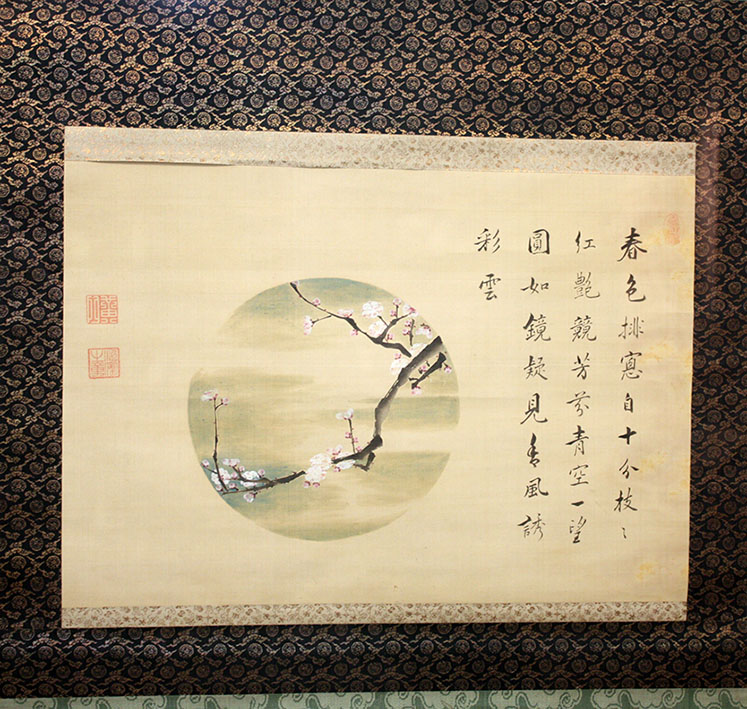 春色排窓自十分枝〻
紅艶競芳芬青空一望
圓如鏡疑見香風誘
彩雲